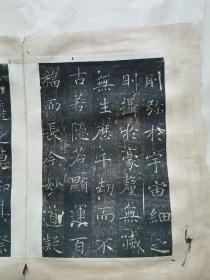 則弥於宇宙細之
則攝於豪釐無滅
無生歷千劫而不
古若隱若顯運百
福而長今妙道凝
遵之莫知其際